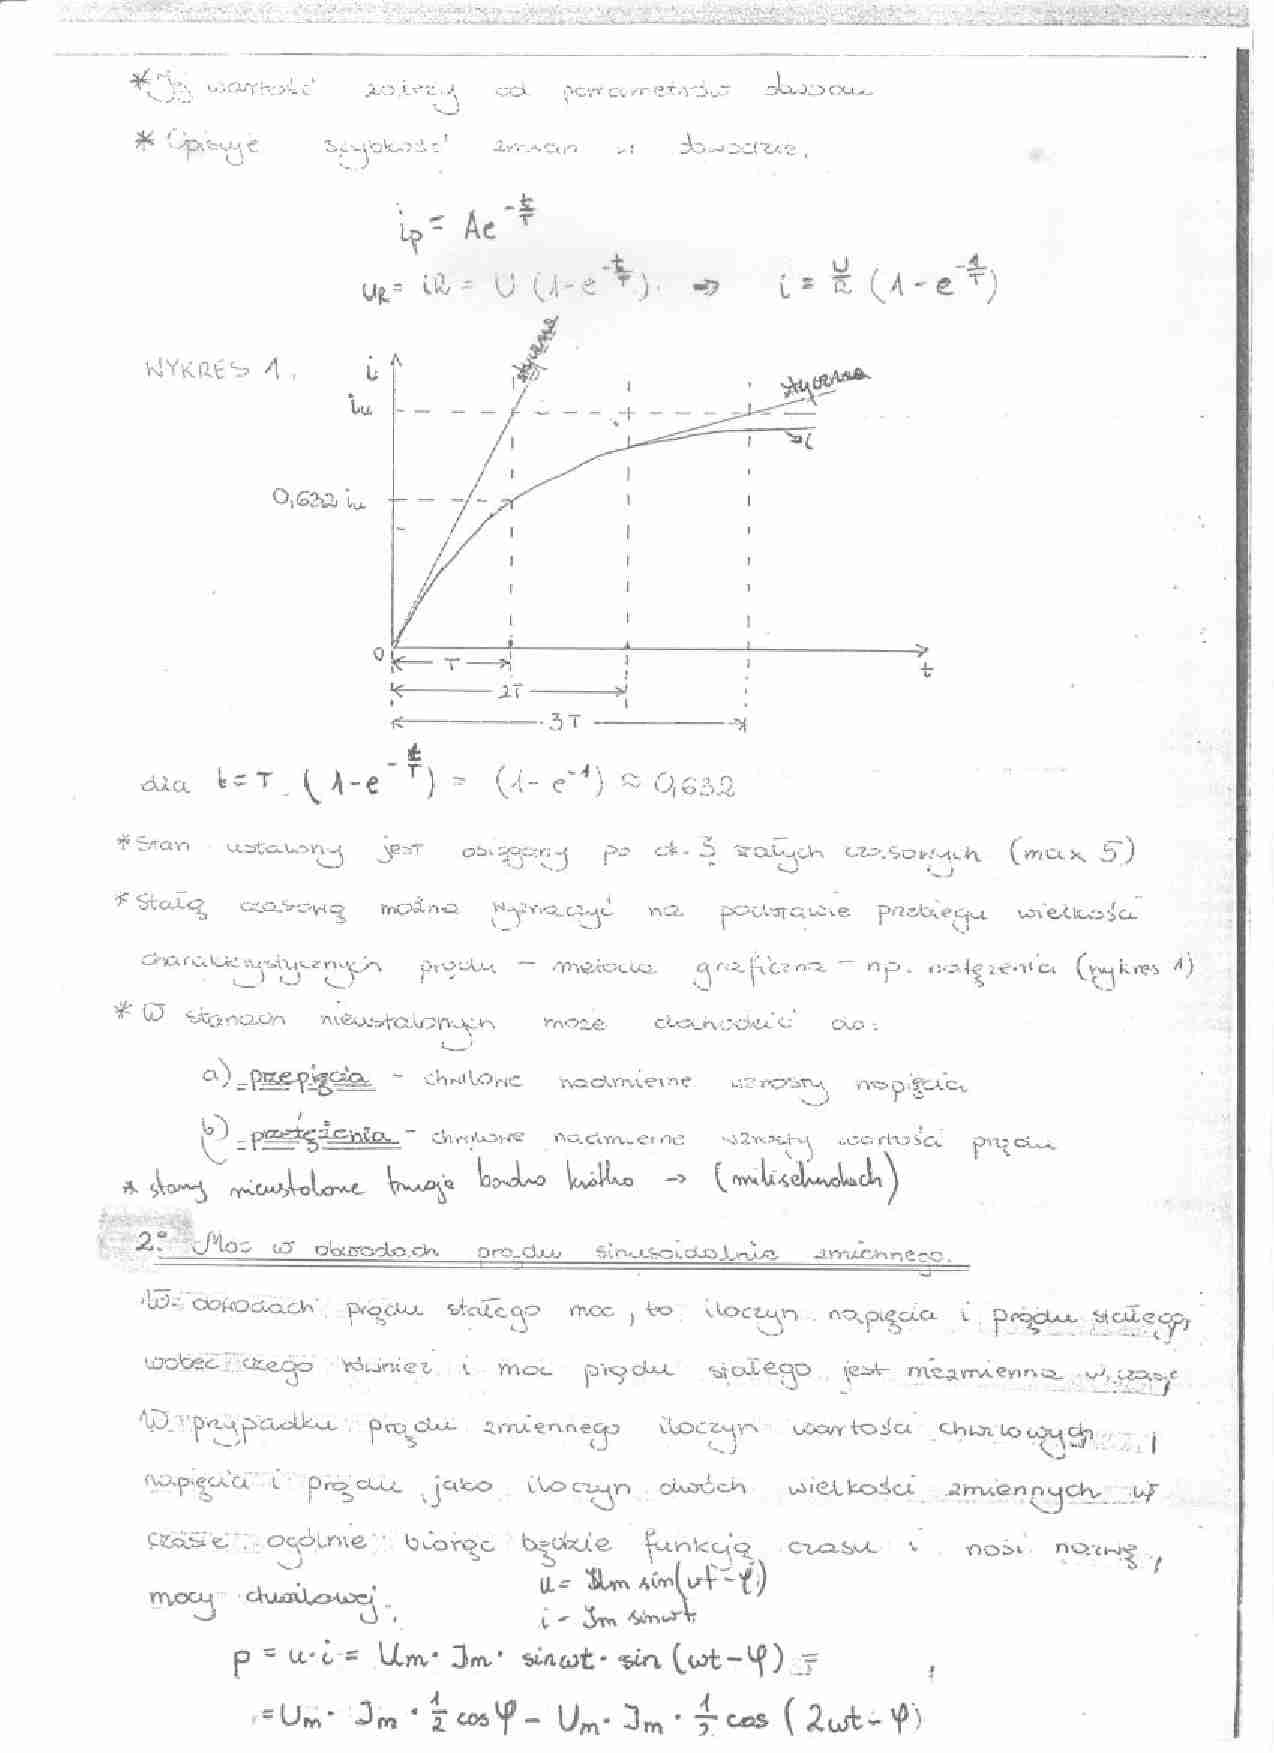 * Jej wartość zależy od parametrów obwodu
* Opisuje szybkość zmian w obwodzie.
ip = Ae^{-t/T}
uR = iR = U (1-e^{-t/T}). => i = U/R (1-e^{-1/T})
styczna
WYKRES 1. i
iu
styczna
i
0,632 iu
0
T
t
2T
3T
dla t=T (1-e^{-t/T}) = (1-e^{-1}) ≈ 0,632
* Stan ustalony jest osiągany po ok. 3 stałych czasowych (max 5)
* Stałą czasową można wyznaczyć na podstawie przebiegu wielkości
charakterystycznych prądu - metoda graficzna - np. natężenia (wykres 1)
* W stanach nieustalonych może dochodzić do:
a) przepięcia - chwilowe nadmierne wzrosty napięcia
b) przetężenia - chwilowe nadmierne wzrosty wartości prądu
* stany nieustalone trwają bardzo krótko -> (milisekundach)
2. Moc w obwodach prądu sinusoidalnie zmiennego.
W obwodach prądu stałego moc, to iloczyn napięcia i prądu stałego,
wobec czego również i moc prądu stałego jest niezmienna w czasie
W przypadku prądu zmiennego iloczyn wartości chwilowych
napięcia i prądu jako iloczyn dwóch wielkości zmiennych w
czasie ogólnie biorąc będzie funkcją czasu i nosi nazwę
u = Um sin(wt-φ)
mocy chwilowej.
i - Jm sinwt
p = u·i = Um· Jm· sinωt· sin (ωt-φ) =
= Um· Jm · 1/2 cosφ - Um· Jm · 1/2 cos (2ωt-φ)